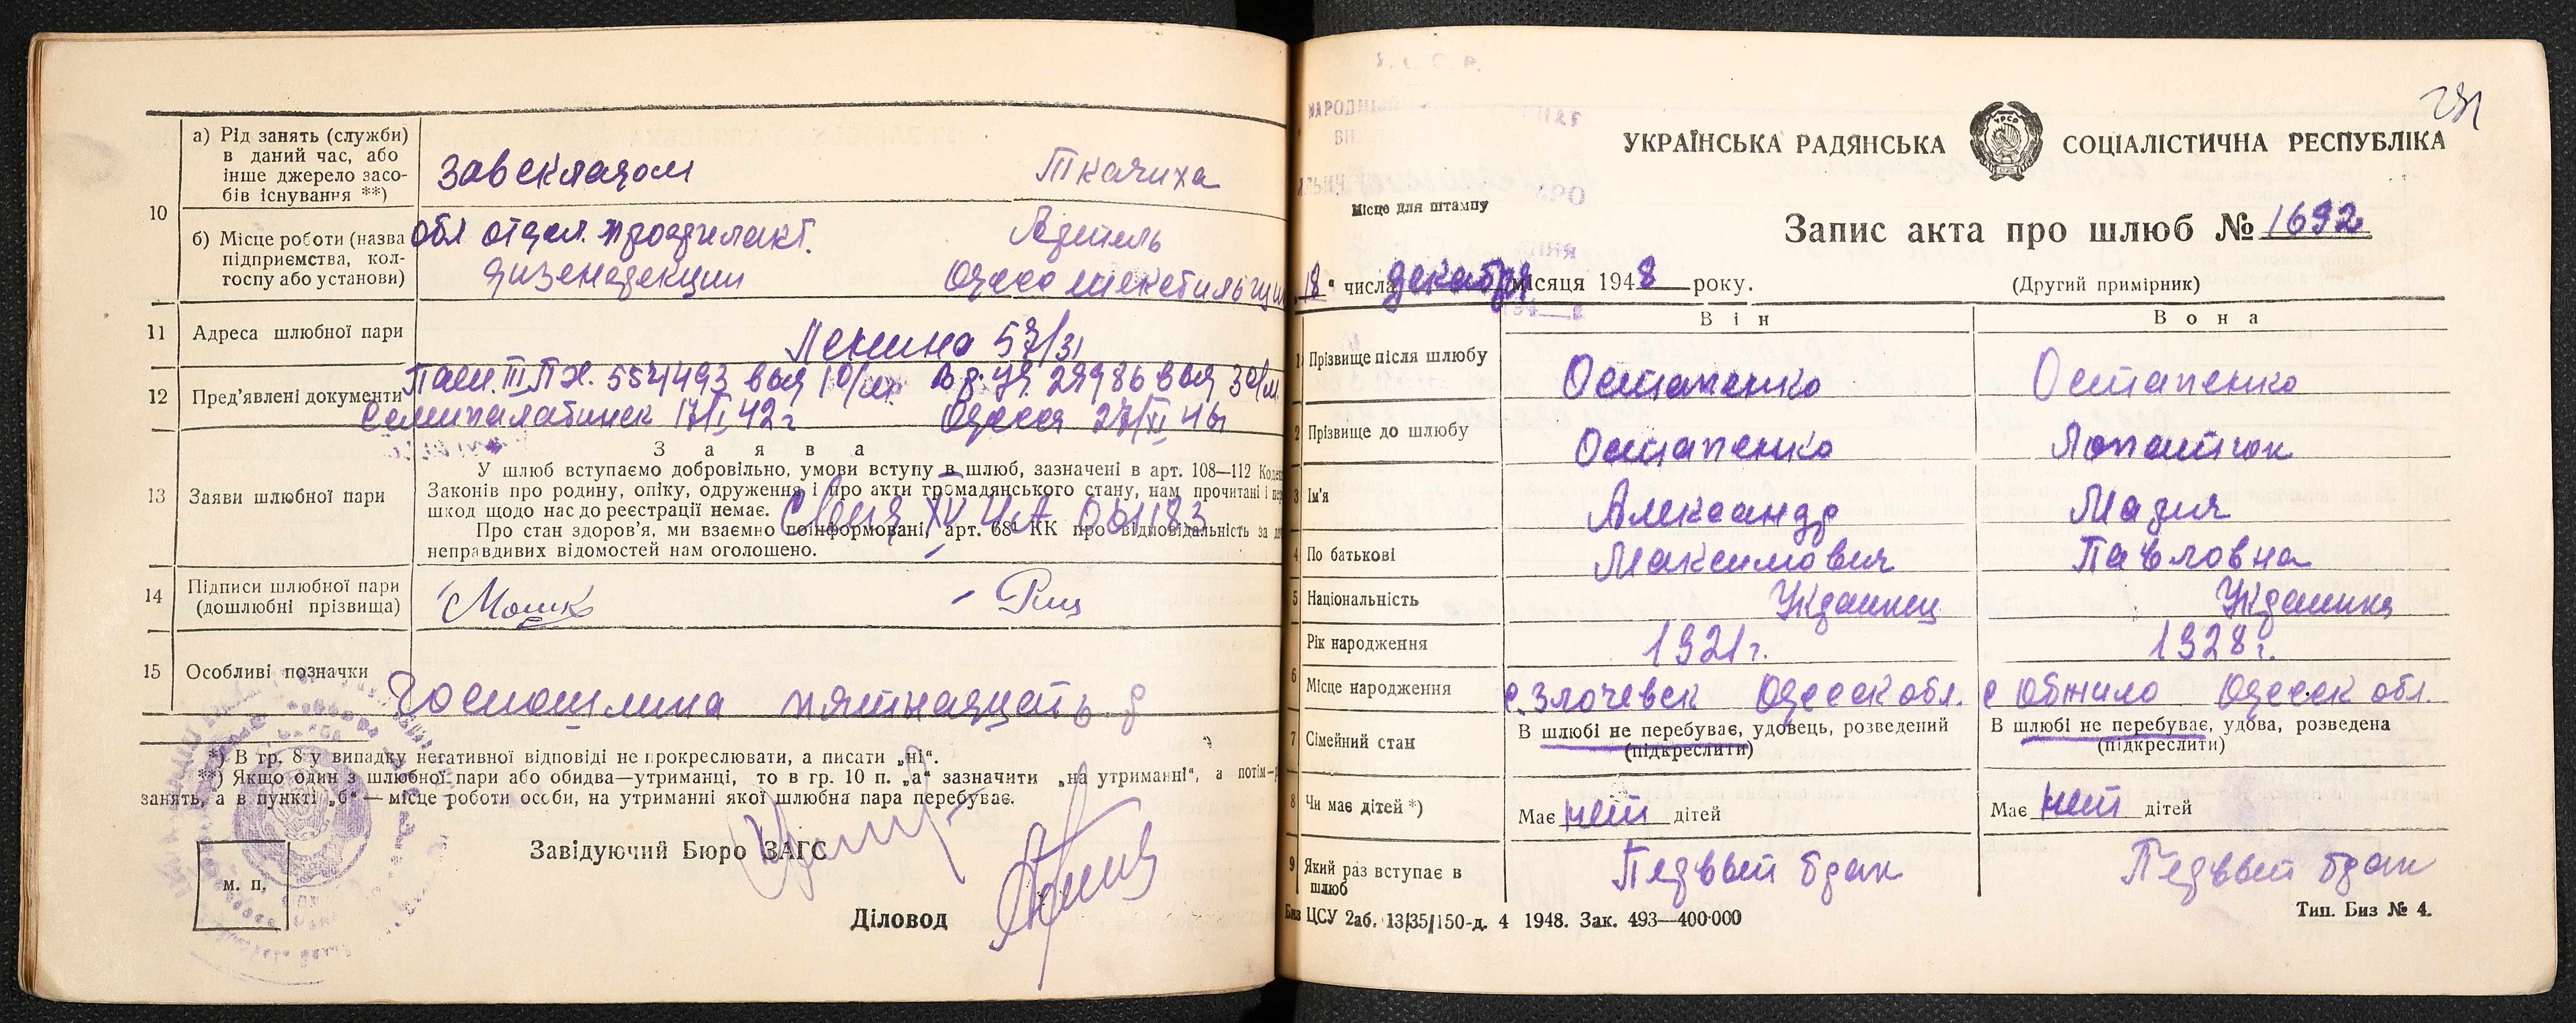 10
а) Рід занять (служби)
в даний час, або
інше джерело засо-
бів існування **)
завскладом
Ткачиха
б) Місце роботи (назва
підприємства, кол-
госпу або установи)
обл отдел. профилакт.
дизенфекции
Артель
11
Адреса шлюбної пари
Ленина 57/31
12
Пред'явлені документи
Семипалатинск 17/I 42 г
Одесса 27/XI 46
13
Заяви шлюбної пари
З а я в а
У шлюб вступаємо добровільно, умови вступу в шлюб, зазначені в арт. 108—112
Законів про родину, опіку, одруження і про акти громадянського стану, нам прочитані і
шкод щодо нас до реєстрації немає.
Про стан здоров'я, ми взаємно поінформовані, арт. 68¹ КК про відповідальність за
неправдивих відомостей нам оголошено.
14
Підписи шлюбної пари
(дошлюбні прізвища)
15
Особливі позначки
Госпошлина пятнадцать р
*) В гр. 8 у випадку негативної відповіді не прокреслювати, а писати „ні“.
**) Якщо один з шлюбної пари або обидва—утриманці, то в гр. 10 п. „а“ зазначити „на утриманні“, а потім
занять, а в пункті „б“ — місце роботи особи, на утриманні якої шлюбна пара перебуває.
Завідуючий Бюро ЗАГС
м. п.
Діловод
УКРАЇНСЬКА РАДЯНСЬКА СОЦІАЛІСТИЧНА РЕСПУБЛІКА
Місце для штампу
Запис акта про шлюб № 1692
„18“ числа декабря місяця 1948 року.
(Другий примірник)
Він
Вона
1 Прізвище після шлюбу
Остапенко
Остапенко
2 Прізвище до шлюбу
Остапенко
Лопатюк
3 Ім'я
Александр
Мария
4 По батькові
Максимович
Павловна
5 Національність
Украинец
Украинка
6
Рік народження
1921 г.
1928 г.
Місце народження
с. Злочевск Одесск обл.
с Обжило Одесск обл.
7 Сімейний стан
В шлюбі не перебуває, удовець, розведений
(підкреслити)
В шлюбі не перебуває, удова, розведена
(підкреслити)
8 Чи має дітей *)
Має нет дітей
Має нет дітей
9 Який раз вступає в
шлюб
Первый брак
Первый брак
ЦСУ 2аб. 13/35/150-д. 4 1948. Зак. 493—400·000
Тип. Биз № 4.